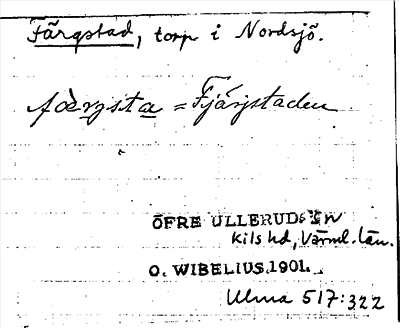 Färgstad, torp i Nordsjö.
fœ̀rgsta = Fjärjstaden
ÖFRE ULLERUDS SN
Kils hd, Värml. län.
O. WIBELIUS. 1901.
Ulma 517:322